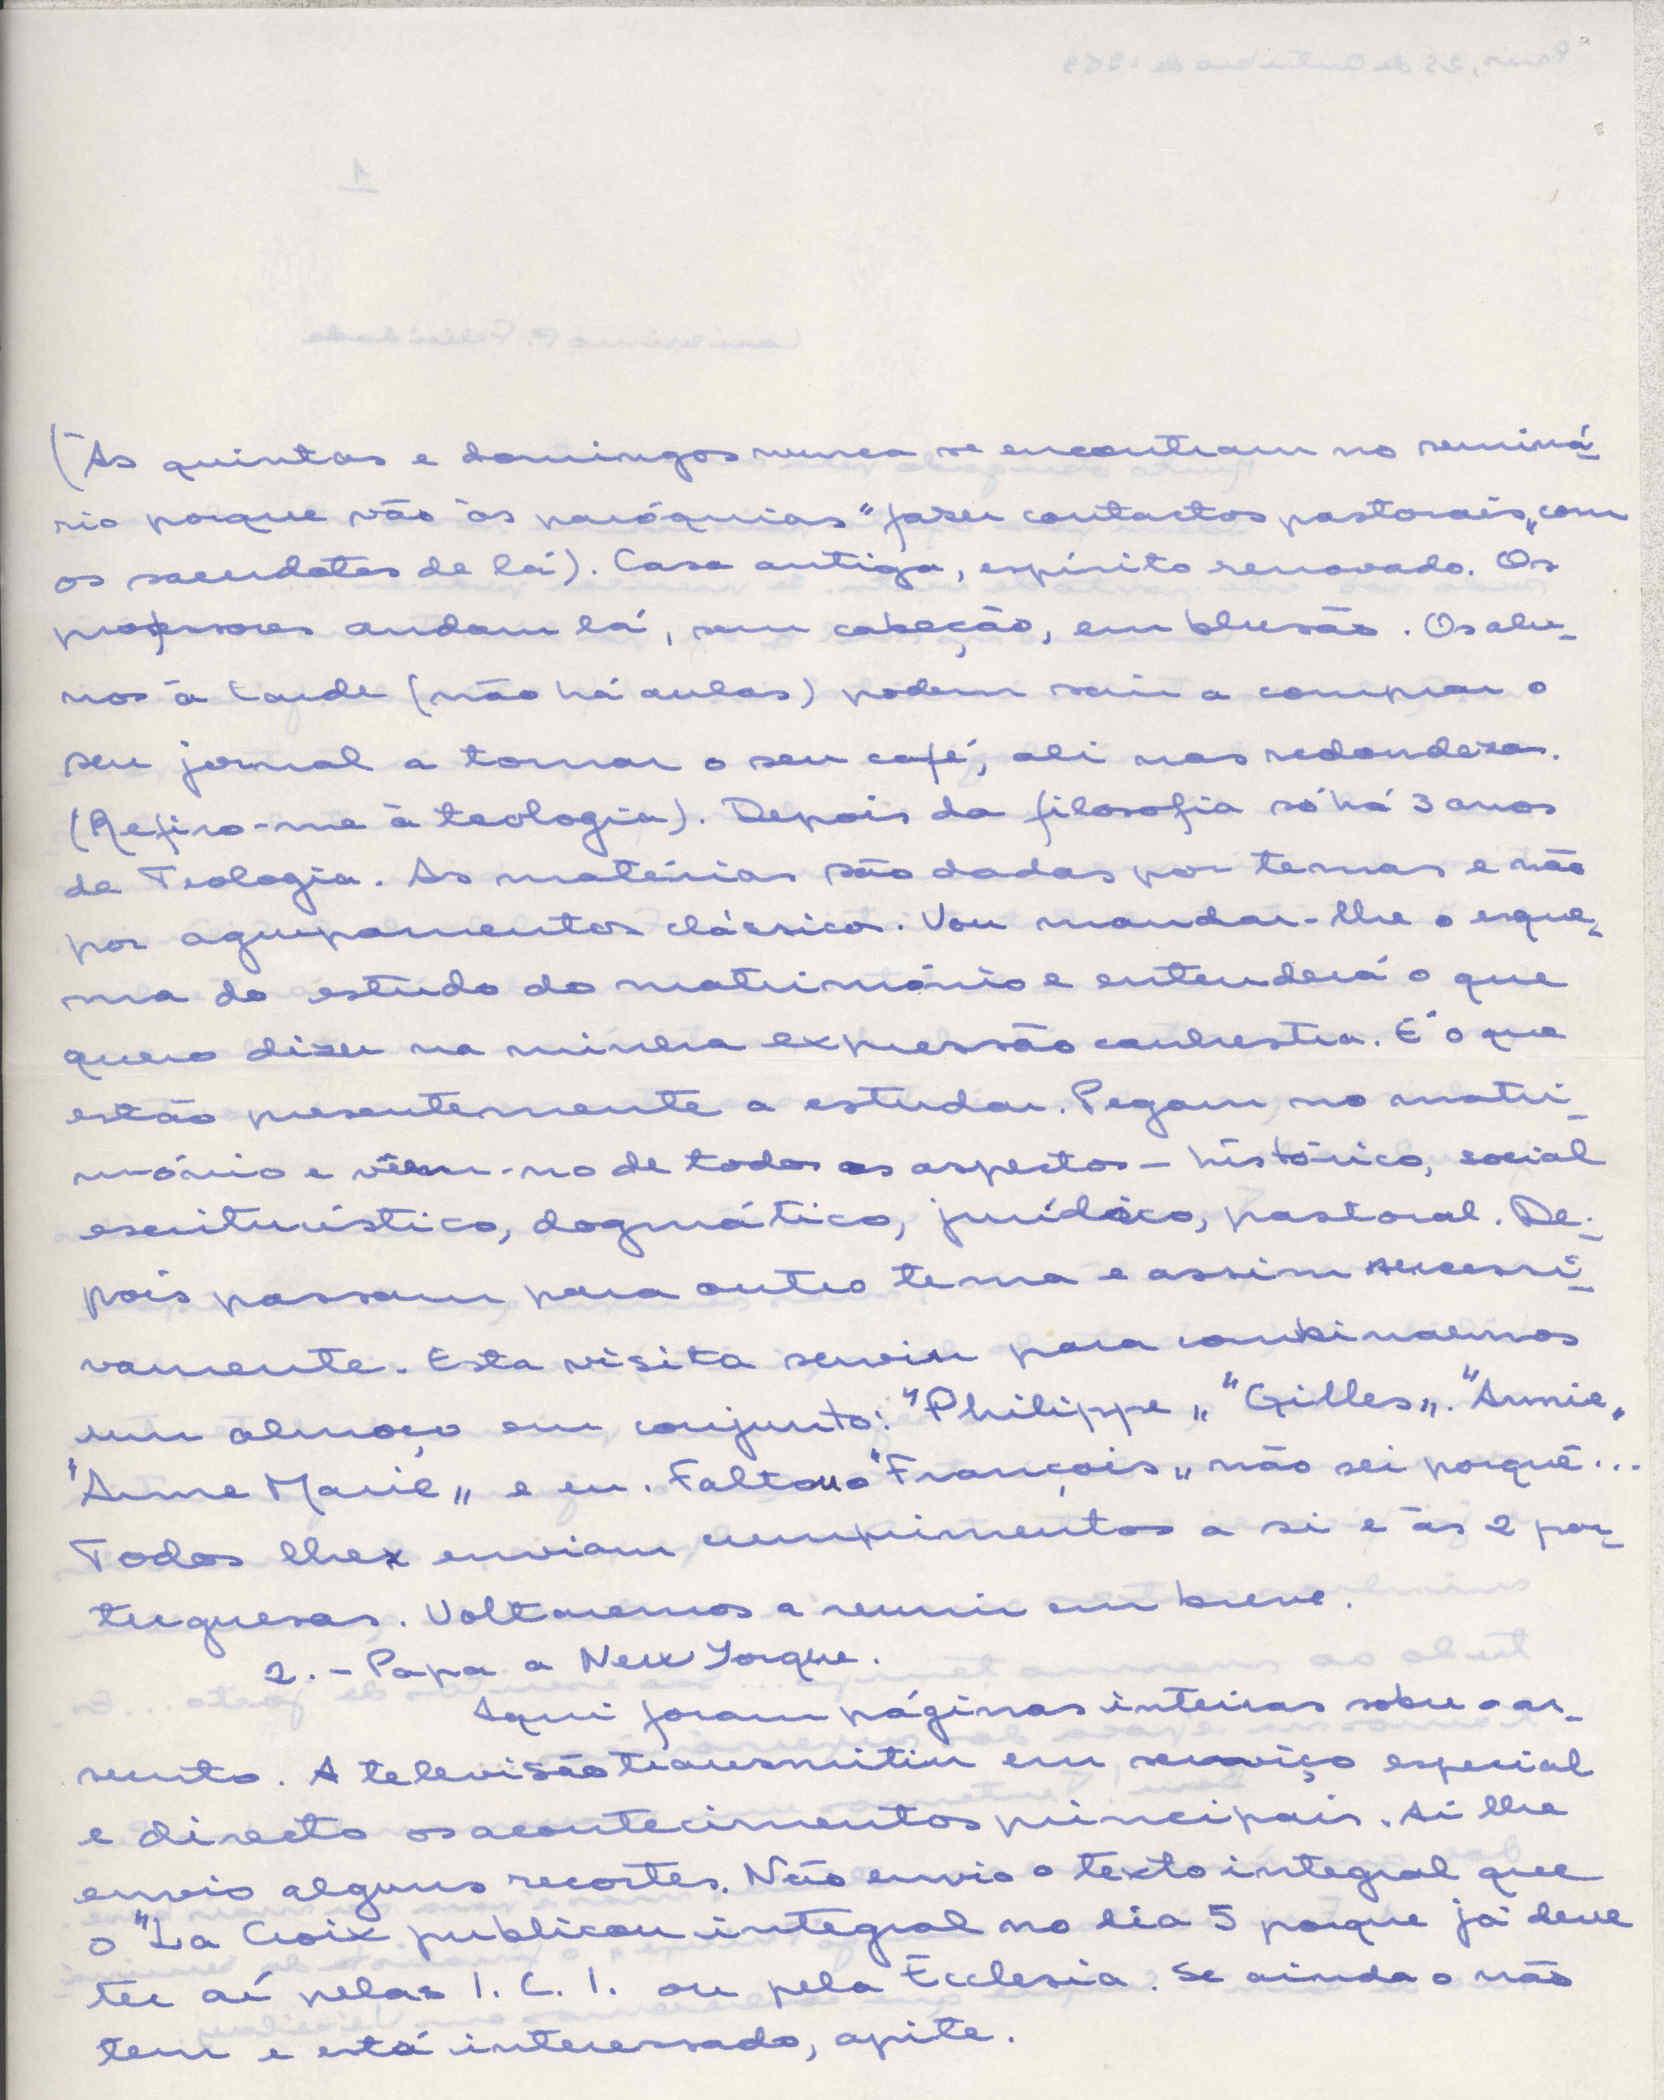 (Às quintas e domingos nunca se encontram no seminá-
rio porque vão às paróquias "fazer contactos pastorais„ com
os sacerdotes de lá). Casa antiga, espírito renovado. Os
professores andam lá, sem cabeção, em blusão. Os alu-
nos à tarde (não há aulas) podem sair a comprar o
seu jornal a tomar o seu café, ali nas redondezas.
(Refiro-me à teologia). Depois da filosofia só há 3 anos
de Teologia. As matérias são dadas por temas e não
por agrupamentos clássicos. Vou mandar-lhe o esque-
ma do estudo do matrimónio e entenderá o que
quero dizer na minha expressão canhestra. É o que
estão presentemente a estudar. Pegam no matri-
mónio e vêem-no de todos os aspectos - histórico, social
escriturístico, dogmático, jurídico, pastoral. De-
pois passam para outro tema e assim sucessi-
vamente. Esta visita serviu para combinarmos
um almoço em conjunto: "Philippe„ "Gilles„. "Annie„
"Anne Marie„ e eu. Faltou o "François„ não sei porquê...
Todos lhe enviam cumprimentos a si e às 2 por-
tuguesas. Voltaremos a reunir em breve.
2. - Papa a New Yorque.
Aqui foram páginas inteiras sobre o as-
sunto. A televisão transmitiu em serviço especial
e directo os acontecimentos principais. Aí lhe
envio alguns recortes. Não envio o texto integral que
o "La Croix publicou integral no dia 5 porque já deve
ter aí pelas I. C. I. ou pela Ecclesia. Se ainda o não
tem e está interessado, apite.